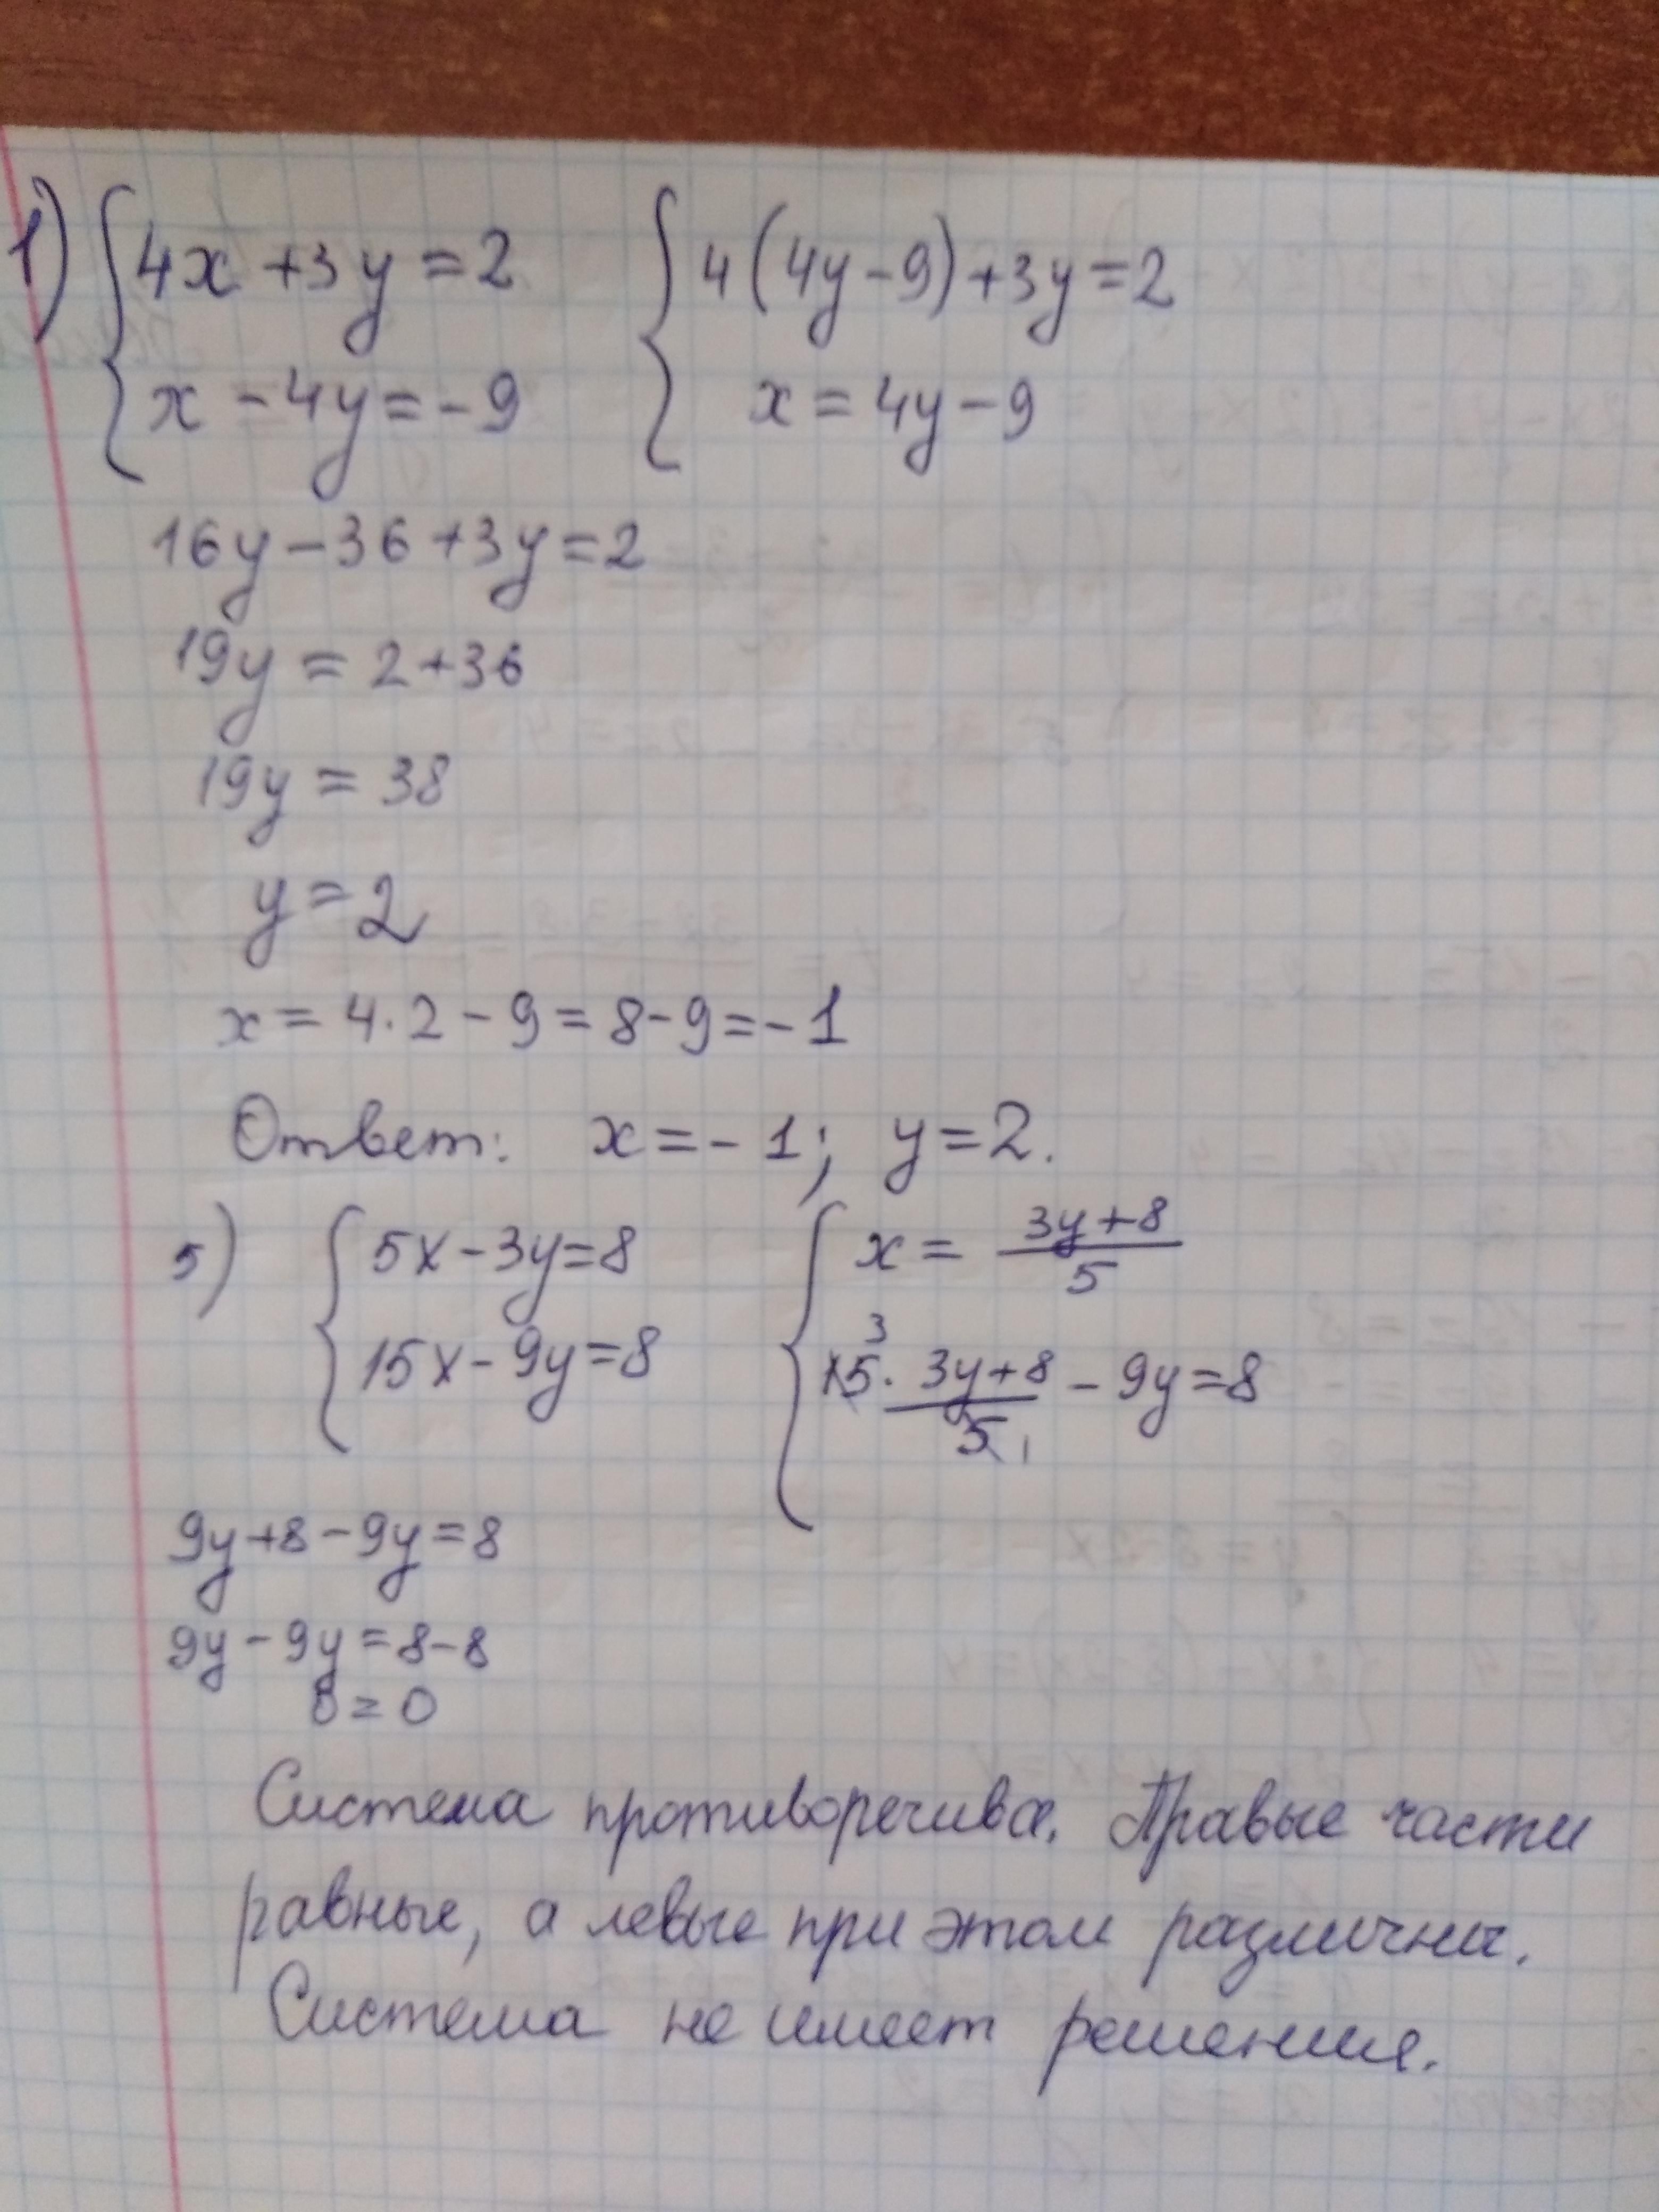 1) { 4x + 3y = 2 { 4(4y - 9) + 3y = 2
x - 4y = - 9 x = 4y - 9
16y - 36 + 3y = 2
19y = 2 + 36
19y = 38
y = 2
x = 4 · 2 - 9 = 8 - 9 = - 1
Ответ: x = - 1; y = 2.
5) { 5x - 3y = 8 { x = (3y + 8)/5
15x - 9y = 8 15³ · (3y + 8)/5₁ - 9y = 8
9y + 8 - 9y = 8
9y - 9y = 8 - 8
0 = 0
Система противоречива. Правые части
равные, а левые при этом различны.
Система не имеет решения.